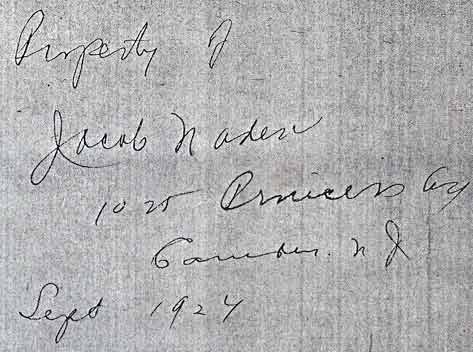 Property of
Jacob Naden
1025 Princess Av
Camden. N J
Sept 1924